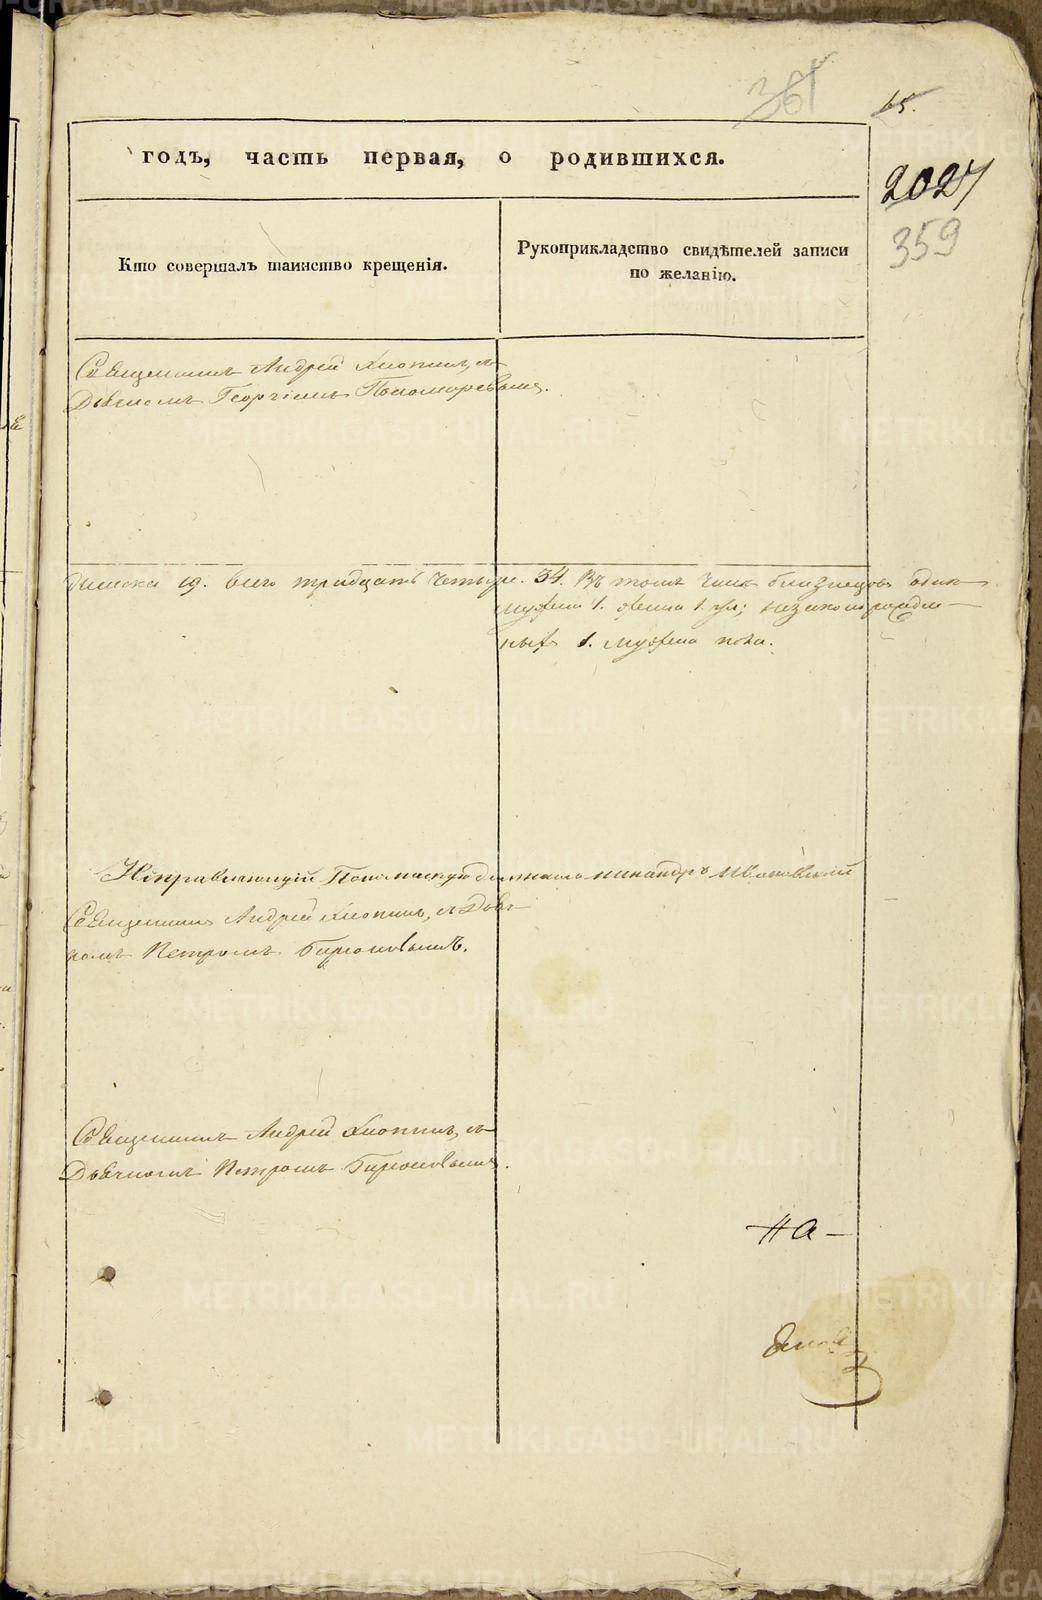 361
15.
годъ, часть первая, о родившихся.
2027
359
Кто совершалъ таинство крещенія.
Рукоприкладство свидѣтелей записи
по желанію.
Священникъ Андрей Хлопинъ, съ
Дьячкомъ Георгіемъ Пономаревымъ.
19. Всего тридцать четыре. 34. Въ томъ числѣ близнецовъ одинъ
мужеска 1. женска 1. незаконнорожден-
ныхъ 1. мужеска пола.
Исправляющій Пономарскую должность Никандръ Ивановскій
Священникъ Андрей Хлопинъ, съ Дьяч-
комъ Петромъ Бирюковымъ.
Священникъ Андрей Хлопинъ, съ
Дьячкомъ Петромъ Бирюковымъ.
на-
METRIKI.GASO-URAL.RU